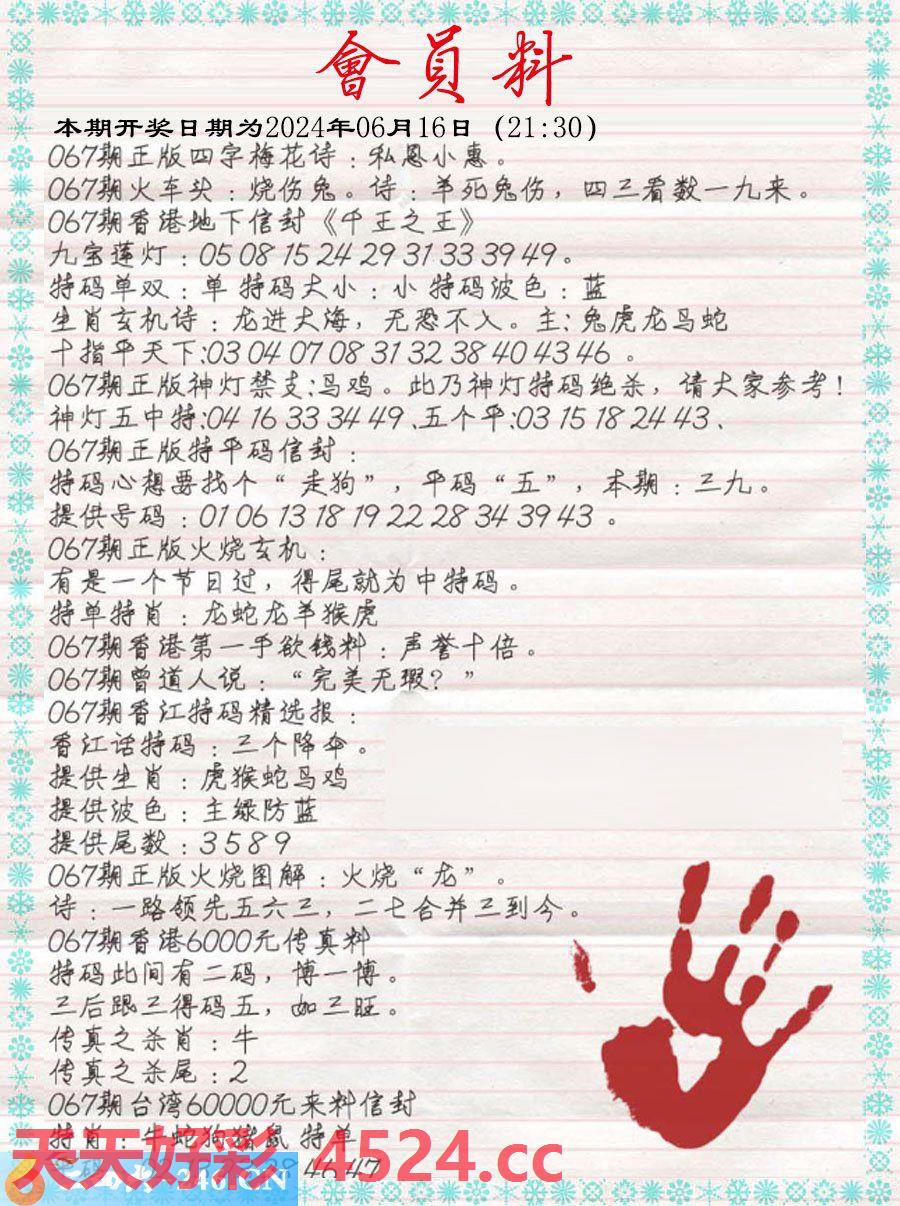 會員料
本期开奖日期为2024年06月16日（21:30）
067期正版四字梅花诗：私恩小惠。
067期火车头：烧伤兔。诗：羊死兔伤，四三看数一九来。
067期香港地下信封《千王之王》
九宝莲灯：05 08 15 24 29 31 33 39 49。
特码单双：单 特码大小：小 特码波色：蓝
生肖玄机诗：龙进大海，无恐不入。主：兔虎龙马蛇
十指平天下:03 04 07 08 31 32 38 40 43 46 。
067期正版神灯禁支:马鸡。此乃神灯特码绝杀，请大家参考！
神灯五中特:04 16 33 34 49 、五个平:03 15 18 24 43、
067期正版特平码信封：
特码心想要找个“走狗”，平码“五”，本期：三九。
提供号码：01 06 13 18 19 22 28 34 39 43 。
067期正版火烧玄机：
有是一个节日过，得尾就为中特码。
特单特肖：龙蛇龙羊猴虎
067期香港第一手欲钱料：声誉十倍。
067期曾道人说：“完美无瑕？”
067期香江特码精选报：
香江话特码：三个降伞。
提供生肖：虎猴蛇马鸡
提供波色：主绿防蓝
提供尾数：3 5 8 9
067期正版火烧图解：火烧“龙”。
诗：一路领先五六三，二七合并三到今。
067期香港6000元传真料
特码此间有二码，博一博。
三后跟三得码五，如三旺。
传真之杀肖：牛
传真之杀尾：2
067期台湾60000元来料信封
特肖：牛蛇狗猪鼠 特单
46 47
天天好彩 4524.cc